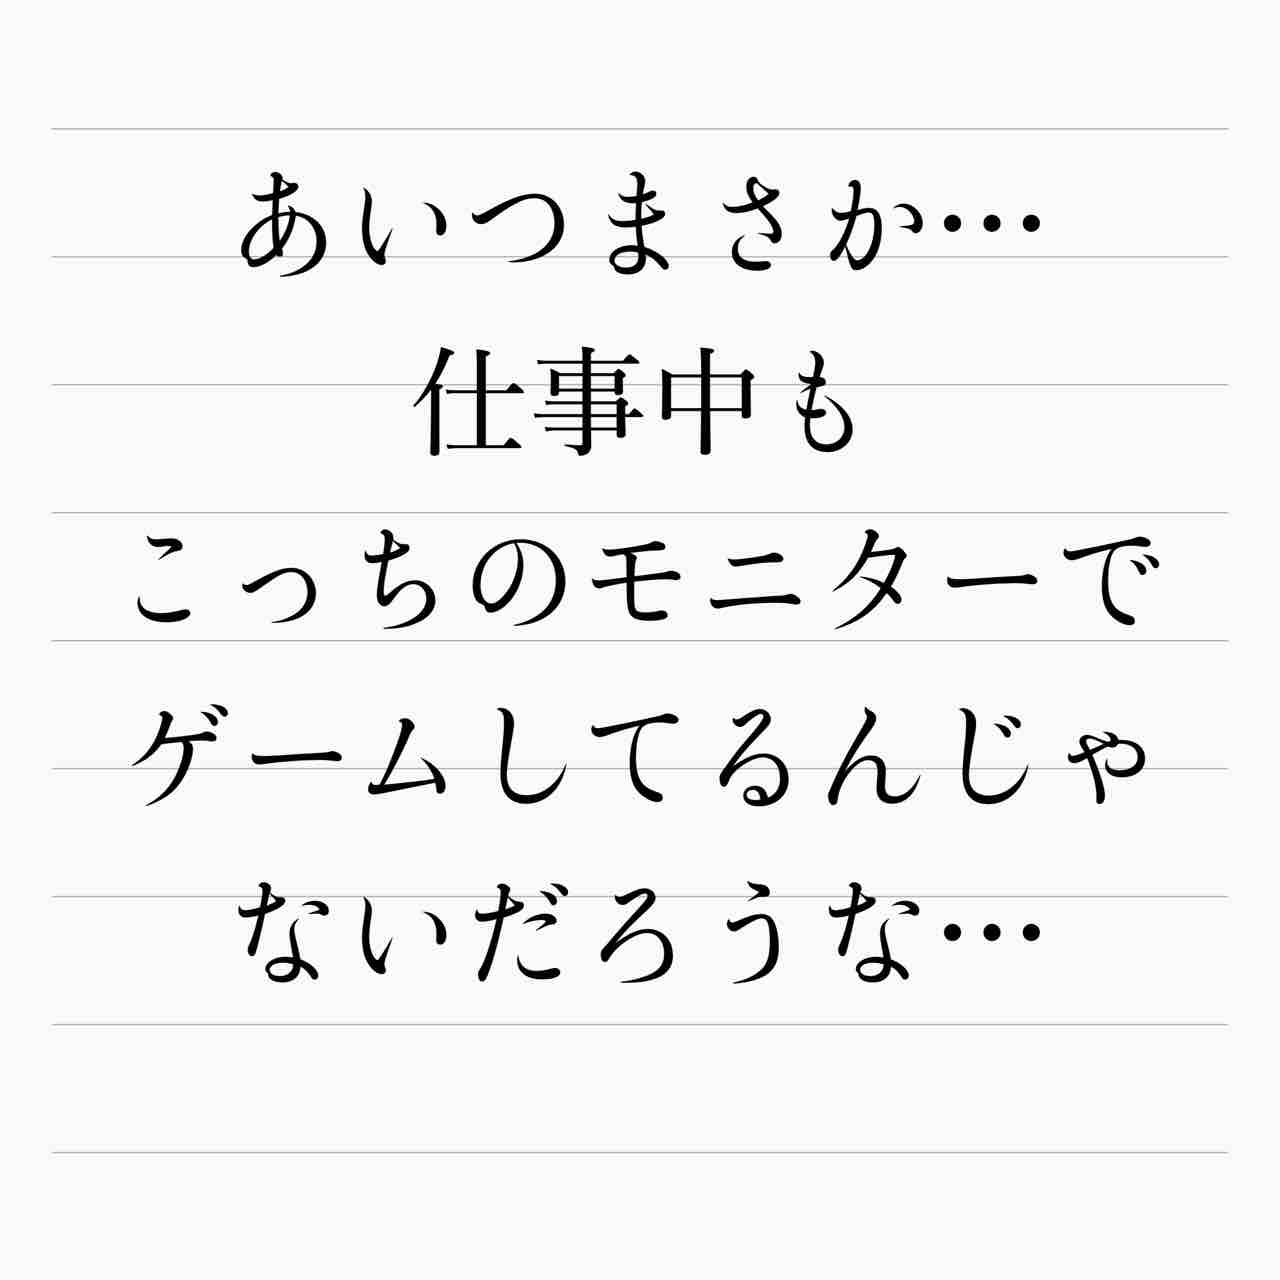 あいつまさか…
仕事中も
こっちのモニターで
ゲームしてるんじゃ
ないだろうな…